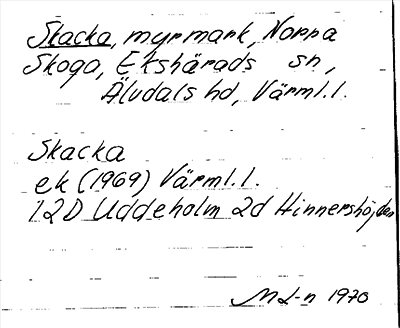 Skacka, myrmark, Norra
Skoga, Ekshärads sn,
Älvdals hd, Värml.l.
Skacka
ek (1969) Värml.l.
12D Uddeholm 2d Hinnershöjden
ML-n 1970